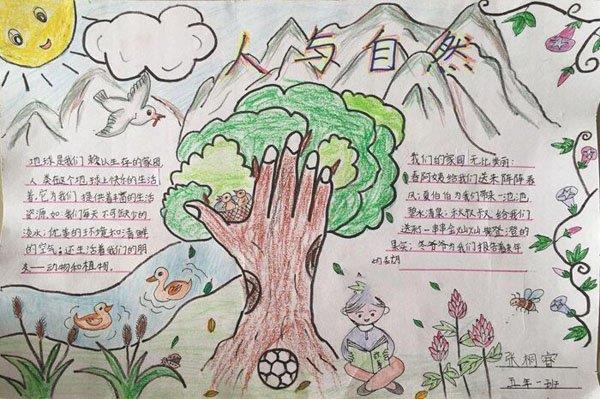 人与自然
地球是我们赖以生存的家园
人类在这个地球上快乐的生活
着,它为我们提供着丰富的生活
资源,如:我们每天不可缺少的
淡水;优美的环境和清鲜
的空气;还生活着我们的朋
友——动物和植物。
我们的家园无比美丽:
春阿姨给我们送来阵阵春
风;夏伯伯为我们带来一池池
碧水清泉;秋叔叔给我们
送了一串串金灿灿黄澄澄的
果实;冬爷爷为我们报告着来年
的希望
张桐睿
五年一班